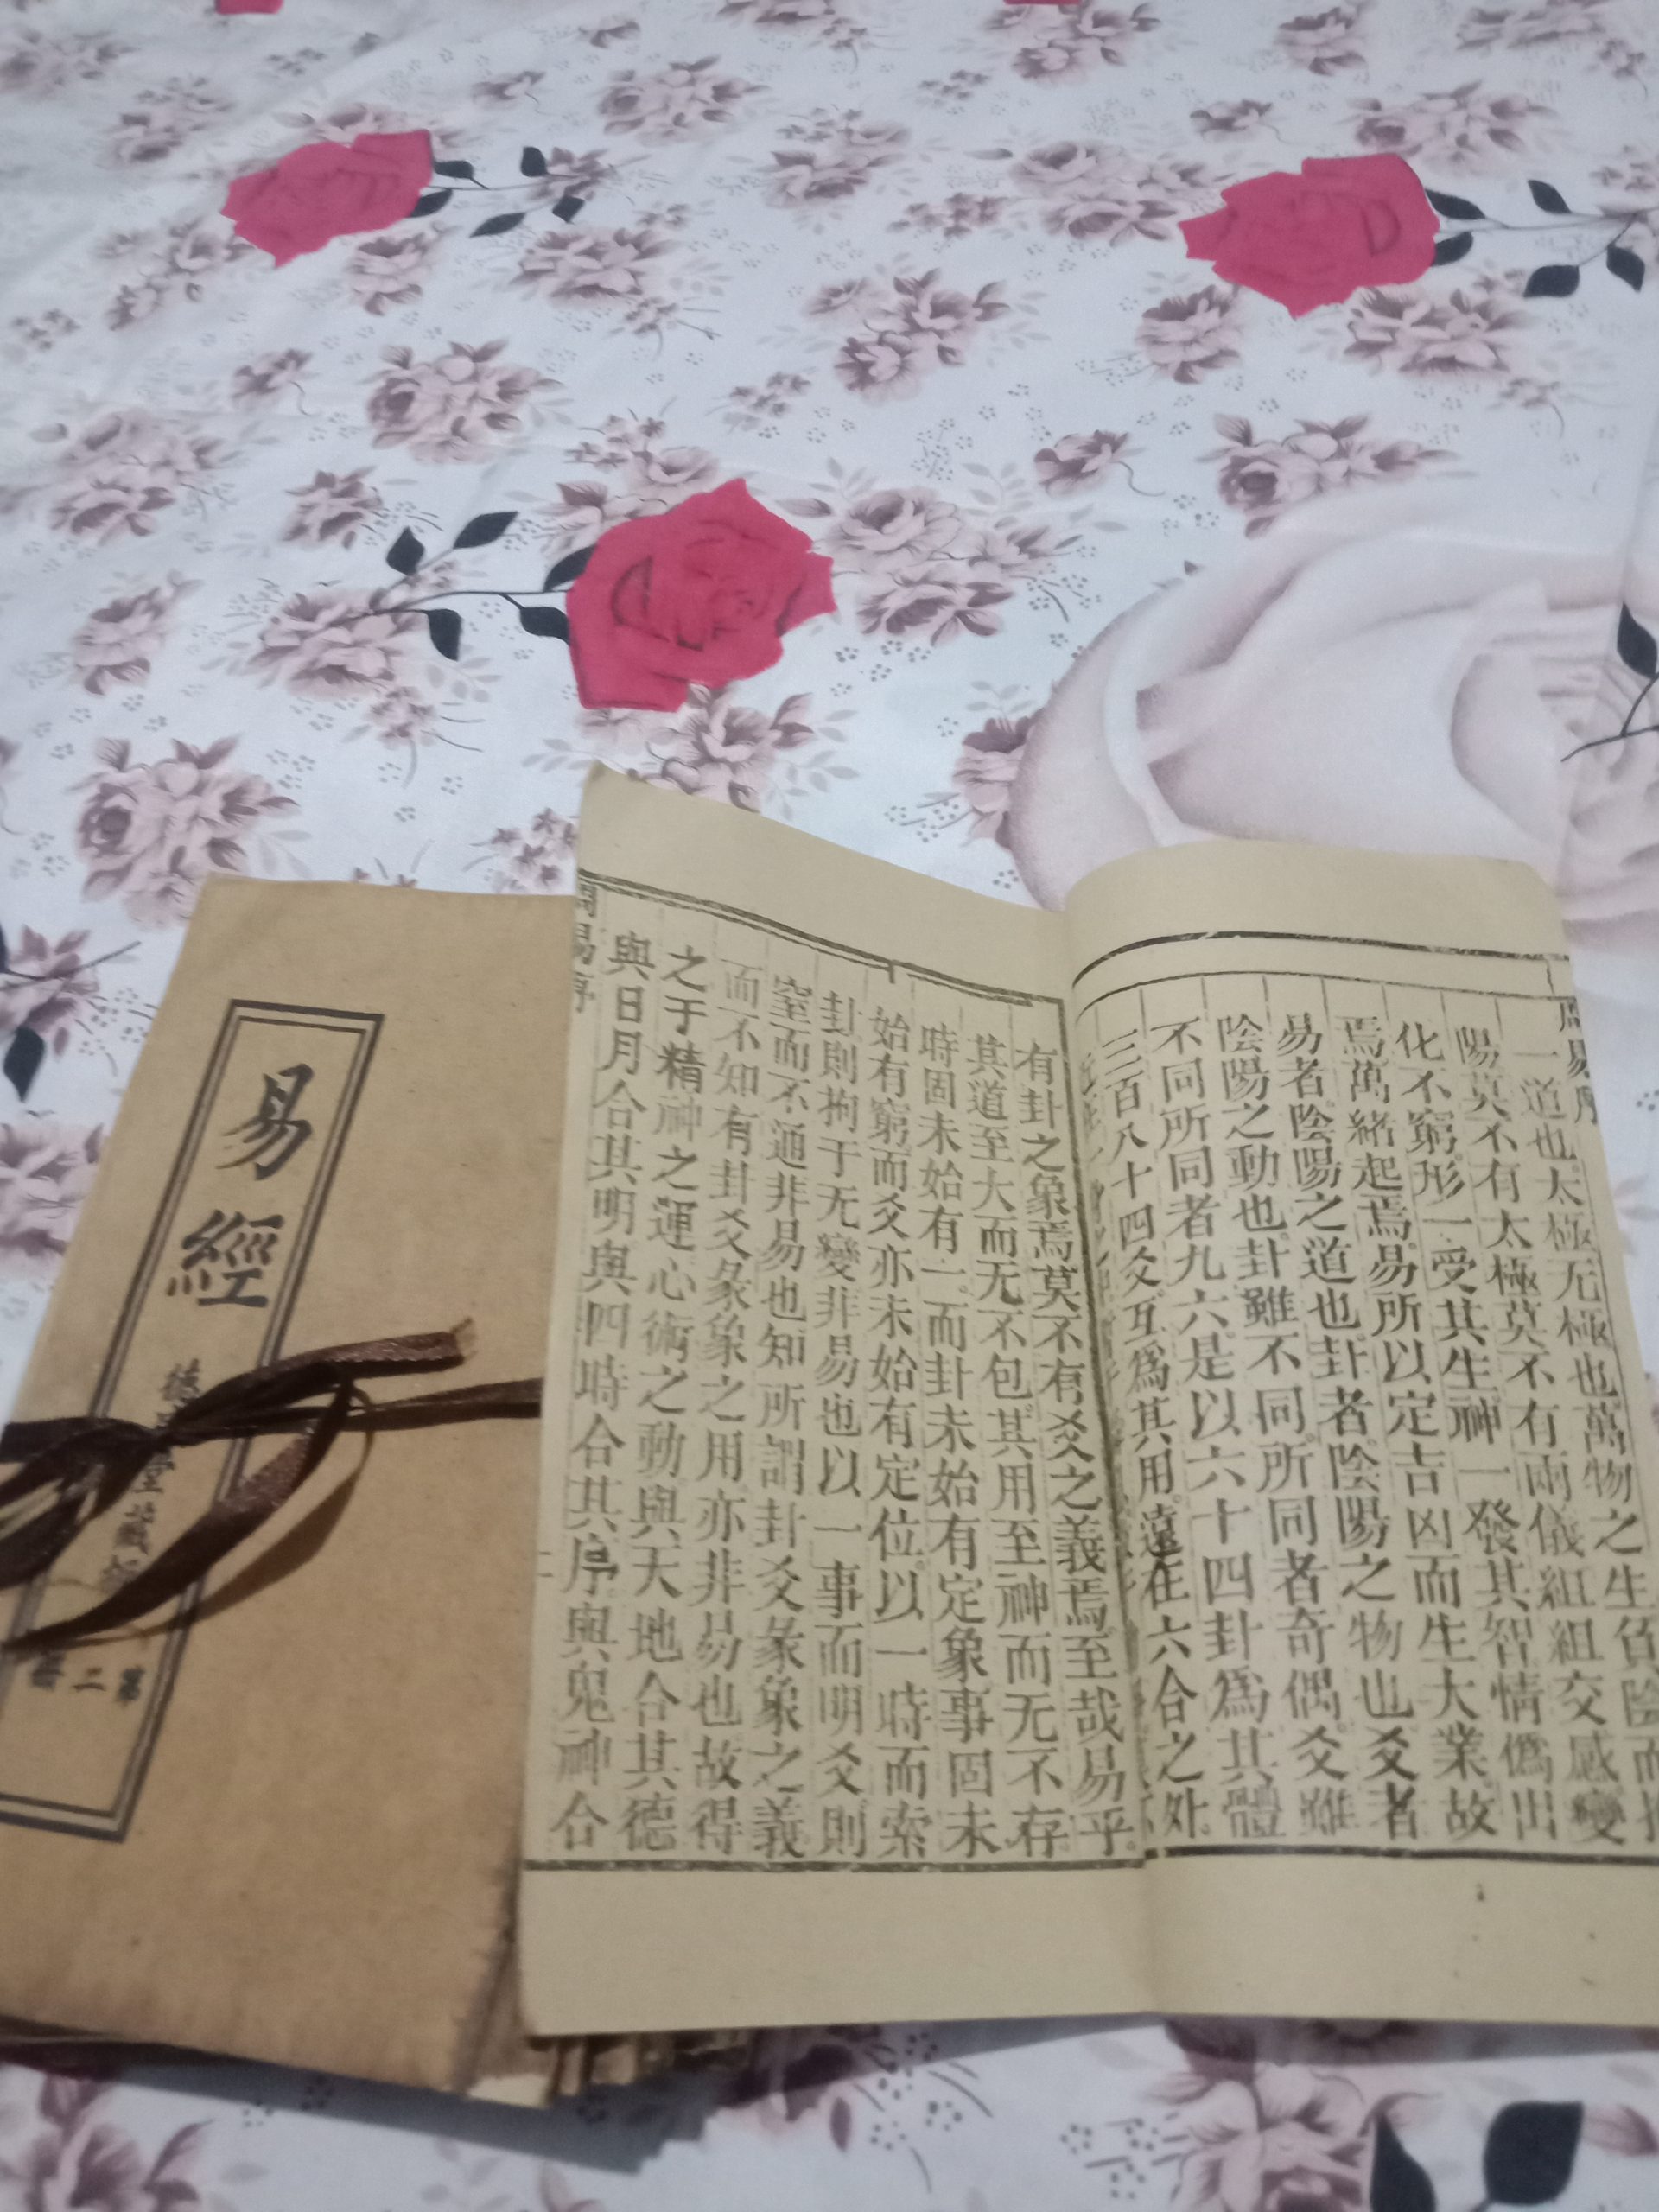 周易序
一道也太極无極也萬物之生負陰而
陽莫不有太極莫不有兩儀絪縕交感變
化不窮形一受其生神一發其智情僞出
焉萬緒起焉易所以定吉凶而生大業故
易者陰陽之道也卦者陰陽之物也爻者
陰陽之動也卦雖不同所同者奇偶爻雖
不同所同者九六是以六十四卦爲其體
三百八十四爻互爲其用遠在六合之外
有卦之象焉莫不有爻之義焉至哉易乎
其道至大而无不包其用至神而无不存
時固未始有一而卦未始有定象事固未
始有窮而爻亦未始有定位以一時而索
卦則拘于无變非易也以一事而明爻則
窒而不通非易也知所謂卦爻彖象之義
而不知有卦爻彖象之用亦非易也故得
之于精神之運心術之動與天地合其德
與日月合其明與四時合其序與鬼神合
周易序
二
易經
德
堂藏
第二